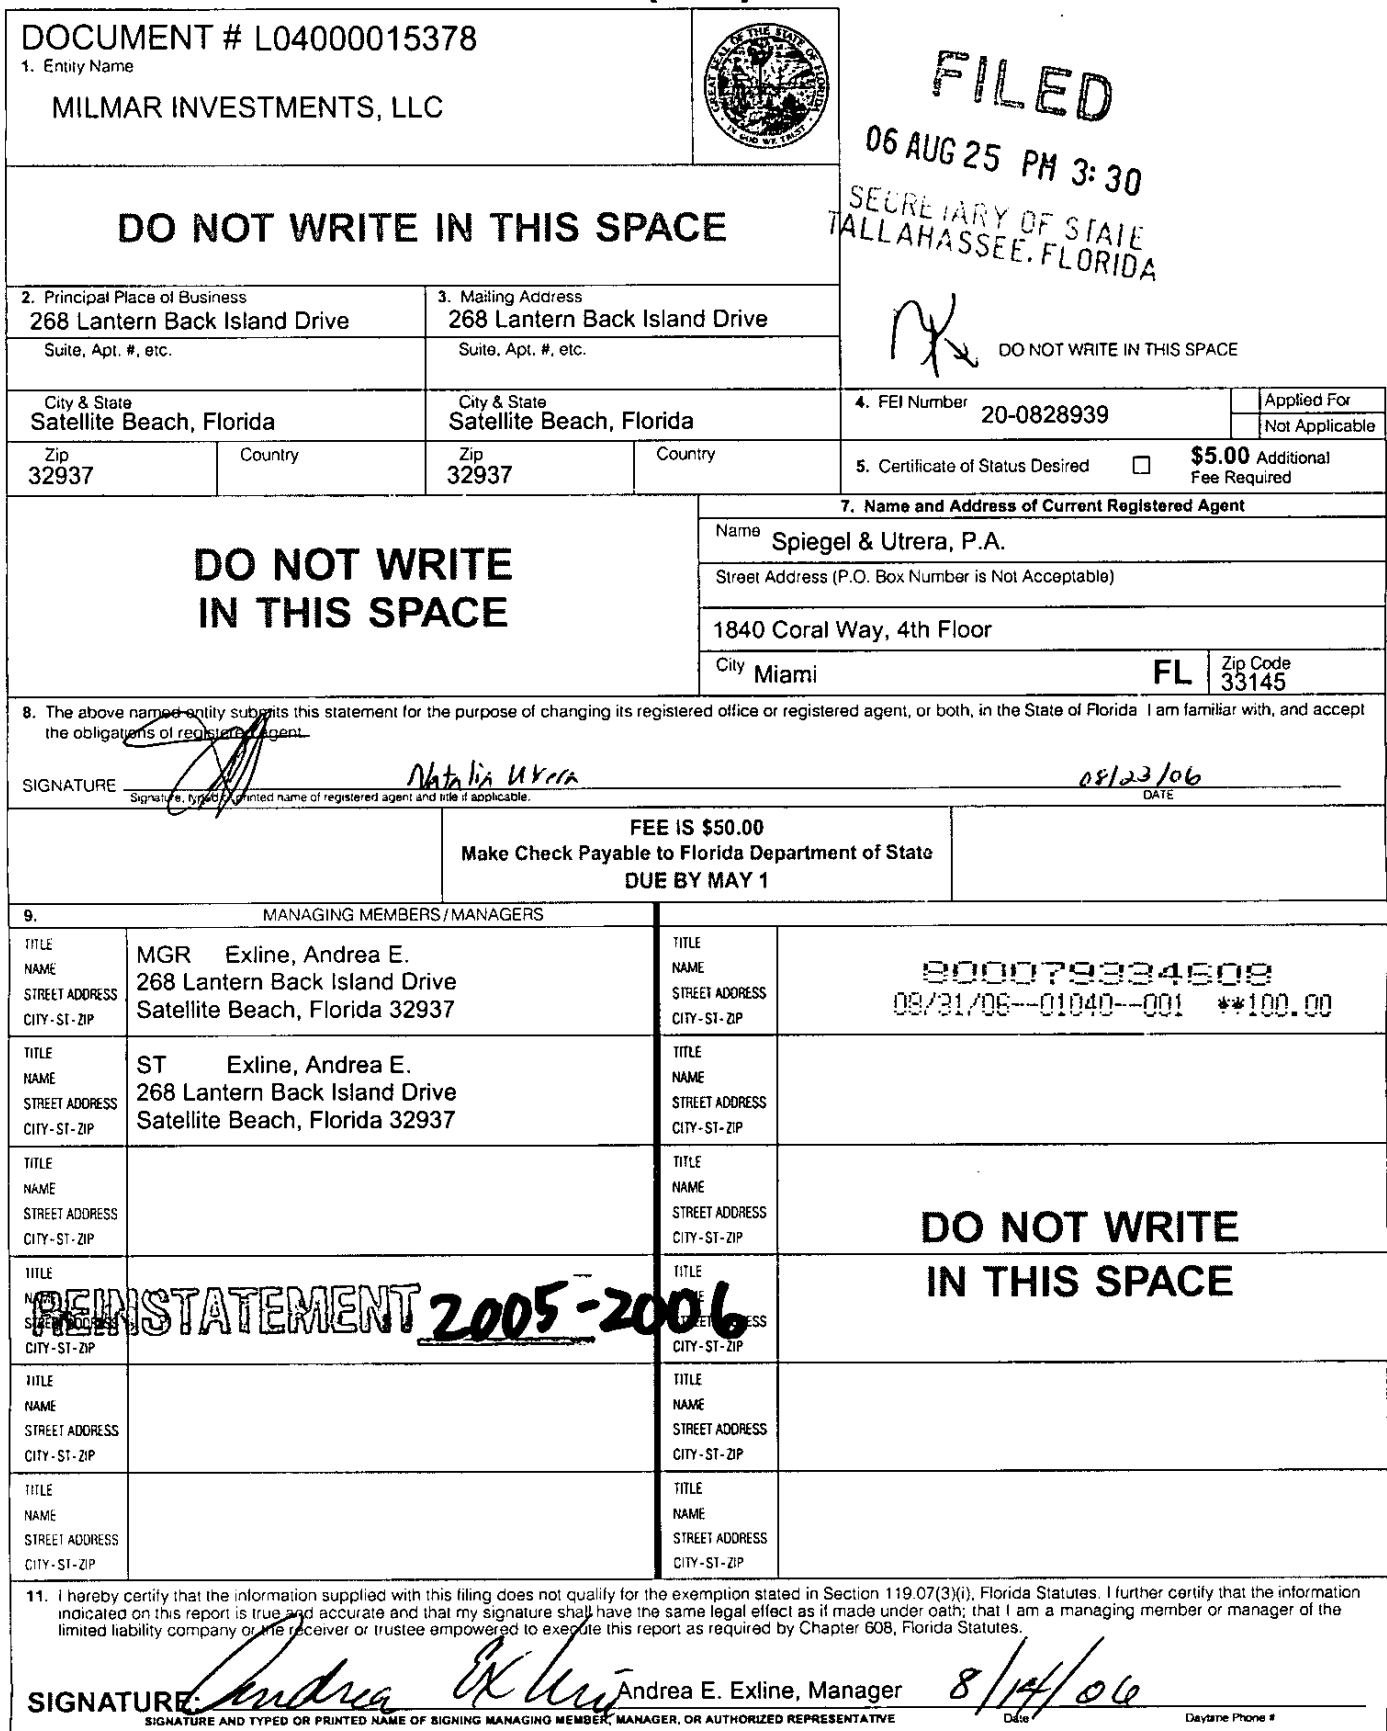 DOCUMENT # L04000015378
1. Entity Name
MILMAR INVESTMENTS, LLC
GREAT SEAL OF THE STATE OF FLORIDA
IN GOD WE TRUST
FILED
06 AUG 25 PM 3:30
SECRETARY OF STATE
TALLAHASSEE, FLORIDA
DO NOT WRITE IN THIS SPACE
2. Principal Place of Business
268 Lantern Back Island Drive
3. Mailing Address
268 Lantern Back Island Drive
Suite, Apt. #, etc.
Suite, Apt. #, etc.
DO NOT WRITE IN THIS SPACE
City & State
Satellite Beach, Florida
City & State
Satellite Beach, Florida
4. FEI Number 20-0828939
Applied For
Not Applicable
Zip
32937
Country
Zip
32937
Country
5. Certificate of Status Desired ☐
$5.00 Additional
Fee Required
DO NOT WRITE
IN THIS SPACE
7. Name and Address of Current Registered Agent
Name Spiegel & Utrera, P.A.
Street Address (P.O. Box Number is Not Acceptable)
1840 Coral Way, 4th Floor
City Miami FL
Zip Code
33145
8. The above named entity submits this statement for the purpose of changing its registered office or registered agent, or both, in the State of Florida I am familiar with, and accept
the obligations of registered agent
SIGNATURE Natalia Utrera 08/23/06
Signature, typed or printed name of registered agent and title if applicable. DATE
FEE IS $50.00
Make Check Payable to Florida Department of State
DUE BY MAY 1
9. MANAGING MEMBERS/MANAGERS
TITLE
NAME
STREET ADDRESS
CITY-ST-ZIP
MGR Exline, Andrea E.
268 Lantern Back Island Drive
Satellite Beach, Florida 32937
TITLE
NAME
STREET ADDRESS
CITY-ST-ZIP
800079334608
08/31/06--01040--001 **100.00
TITLE
NAME
STREET ADDRESS
CITY-ST-ZIP
ST Exline, Andrea E.
268 Lantern Back Island Drive
Satellite Beach, Florida 32937
TITLE
NAME
STREET ADDRESS
CITY-ST-ZIP
TITLE
NAME
STREET ADDRESS
CITY-ST-ZIP
TITLE
NAME
STREET ADDRESS
CITY-ST-ZIP
DO NOT WRITE
IN THIS SPACE
TITLE
NAME
STREET ADDRESS
CITY-ST-ZIP
REINSTATEMENT 2005-2006
TITLE
NAME
STREET ADDRESS
CITY-ST-ZIP
TITLE
NAME
STREET ADDRESS
CITY-ST-ZIP
TITLE
NAME
STREET ADDRESS
CITY-ST-ZIP
TITLE
NAME
STREET ADDRESS
CITY-ST-ZIP
TITLE
NAME
STREET ADDRESS
CITY-ST-ZIP
11. I hereby certify that the information supplied with this filing does not qualify for the exemption stated in Section 119.07(3)(i), Florida Statutes. I further certify that the information
indicated on this report is true and accurate and that my signature shall have the same legal effect as if made under oath; that I am a managing member or manager of the
limited liability company or the receiver or trustee empowered to execute this report as required by Chapter 608, Florida Statutes.
SIGNATURE: Andrea Exline Andrea E. Exline, Manager 8/14/06
SIGNATURE AND TYPED OR PRINTED NAME OF SIGNING MANAGING MEMBER, MANAGER, OR AUTHORIZED REPRESENTATIVE Date Daytime Phone #